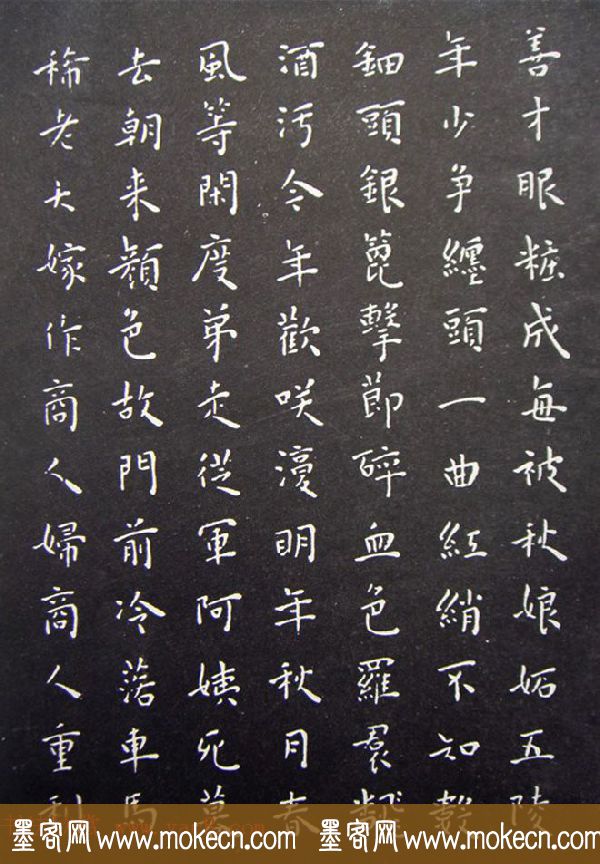 善才眼粧成每被秋娘妬五陵
年少争纏頭一曲紅綃不知數
鈿頭銀篦擊節碎血色羅裠翻
酒污今年歡咲復明年秋月春
風等閑度弟走從軍阿姨死暮
去朝来顏色故門前冷落車馬
稀老大嫁作商人婦商人重利
墨客网 www.mokecn.com 墨客网 www.mokecn.com